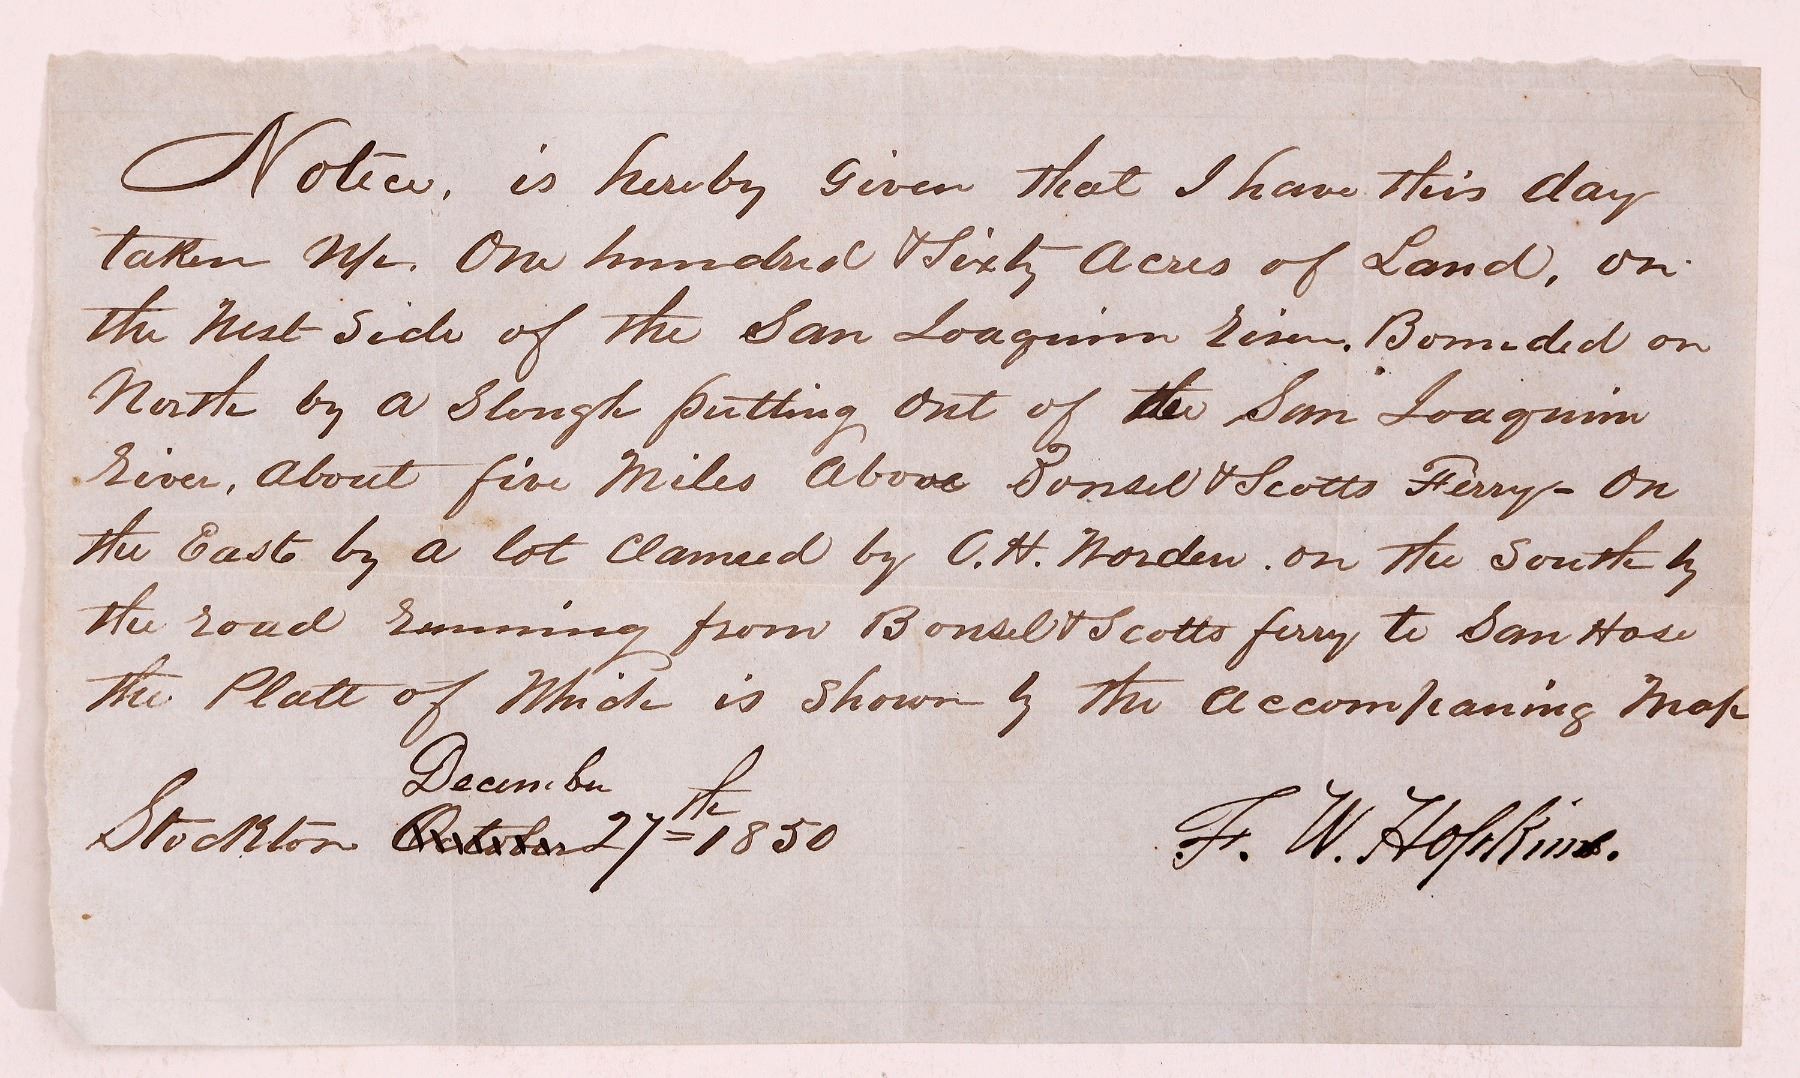 Notice, is hereby Given that I have this day
taken Up. One hundred & Sixty Acres of Land, on
the West Side of the San Joaquinn River. Bounded on
North by a Slough putting Out of the San Joaquinn
River, About five Miles Above Bonsel & Scotts Ferry - On
the East by a lot Clameed by C. H. Worden. on the South by
the road Running from Bonsel & Scotts ferry to San Hose
the Platt of Which is Shown by the Accompaning Map
December
Stockton October 27th 1850
F. W. Hopkins.